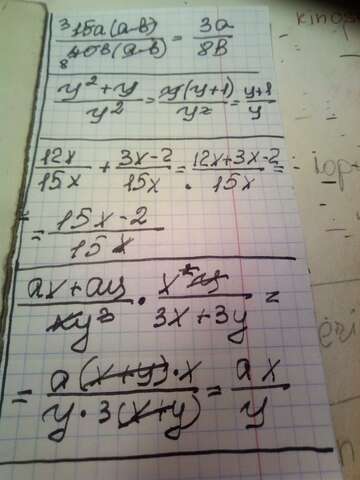 ³15a(a-b) / ₈40b(a-b) = 3a / 8b
y² + y / y² = y(y+1) / y² = y+1 / y
12x / 15x + 3x-2 / 15x = 12x+3x-2 / 15x =
= 15x-2 / 15x
ax+ay / xy² · x²y / 3x+3y =
= a(x+y)·x / y·3(x+y) = ax / y